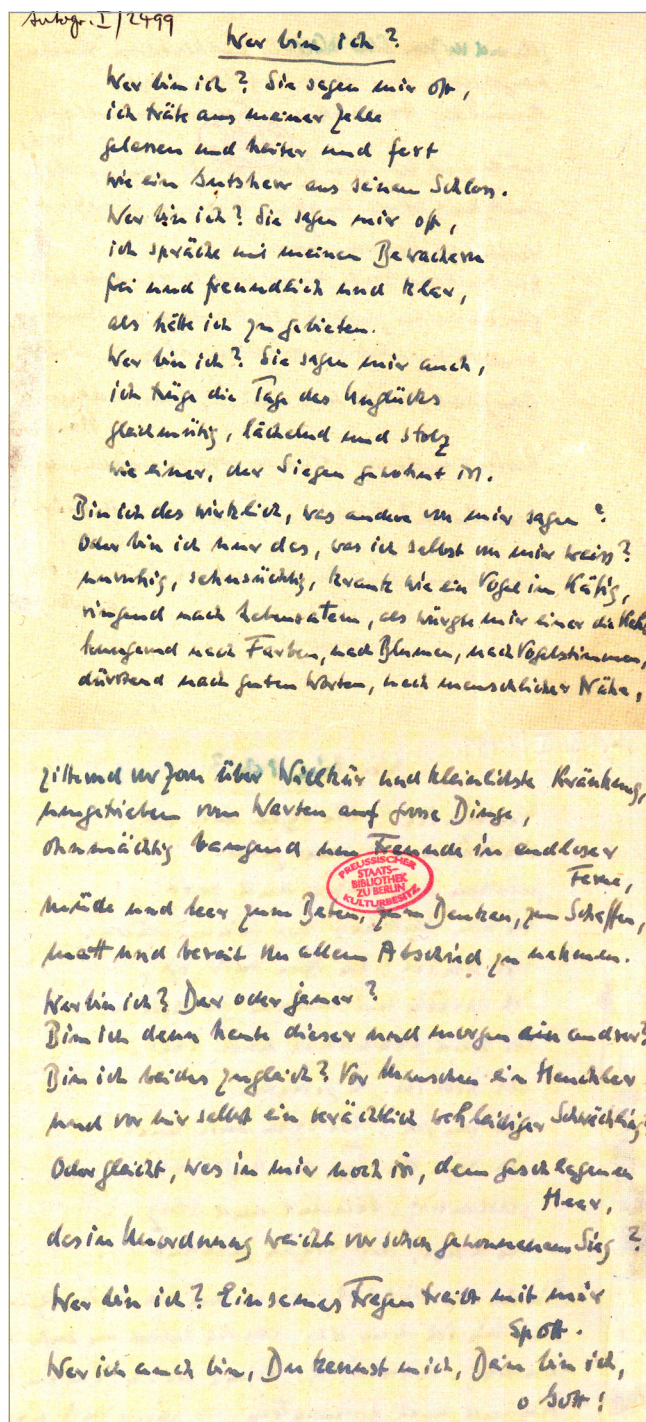 Autogr. I/2499
Wer bin ich?
Wer bin ich? Sie sagen mir oft,
ich träte aus meiner Zelle
gelassen und heiter und fest
wie ein Gutsherr aus seinem Schloss.
Wer bin ich? Sie sagen mir oft,
ich spräche mit meinen Bewachern
frei und freundlich und klar,
als hätte ich zu gebieten.
Wer bin ich? Sie sagen mir auch,
ich trüge die Tage des Unglücks
gleichmütig, lächelnd und stolz
wie einer, der Siegen gewohnt ist.
Bin ich das wirklich, was andere von mir sagen?
Oder bin ich nur das, was ich selbst von mir weiss?
unruhig, sehnsüchtig, krank wie ein Vogel im Käfig,
ringend nach Lebensatem, als würgte mir einer die Kehle
hungernd nach Farben, nach Blumen, nach Vogelstimmen,
dürstend nach guten Worten, nach menschlicher Nähe,
zitternd vor Zorn über Willkür und kleinlichste Kränkung,
umgetrieben vom Warten auf grosse Dinge,
ohnmächtig bangend um Freunde in endloser
Ferne,
müde und leer zum Beten, zum Denken, zum Schaffen,
matt und bereit von allem Abschied zu nehmen.
Wer bin ich? Der oder jener?
Bin ich denn heute dieser und morgen ein andrer?
Bin ich beides zugleich? Vor Menschen ein Heuchler
und vor mir selbst ein verächtlich wehleidiger Schwächling?
Oder gleicht, was in mir noch ist, dem geschlagenen
Heer,
das in Unordnung weicht vor schon gewonnenem Sieg?
Wer bin ich? Einsames Fragen treibt mit mir
Spott.
Wer ich auch bin, Du kennst mich, Dein bin ich,
o Gott!
PREUSSISCHER
STAATS-
BIBLIOTHEK
ZU BERLIN
KULTURBESITZ